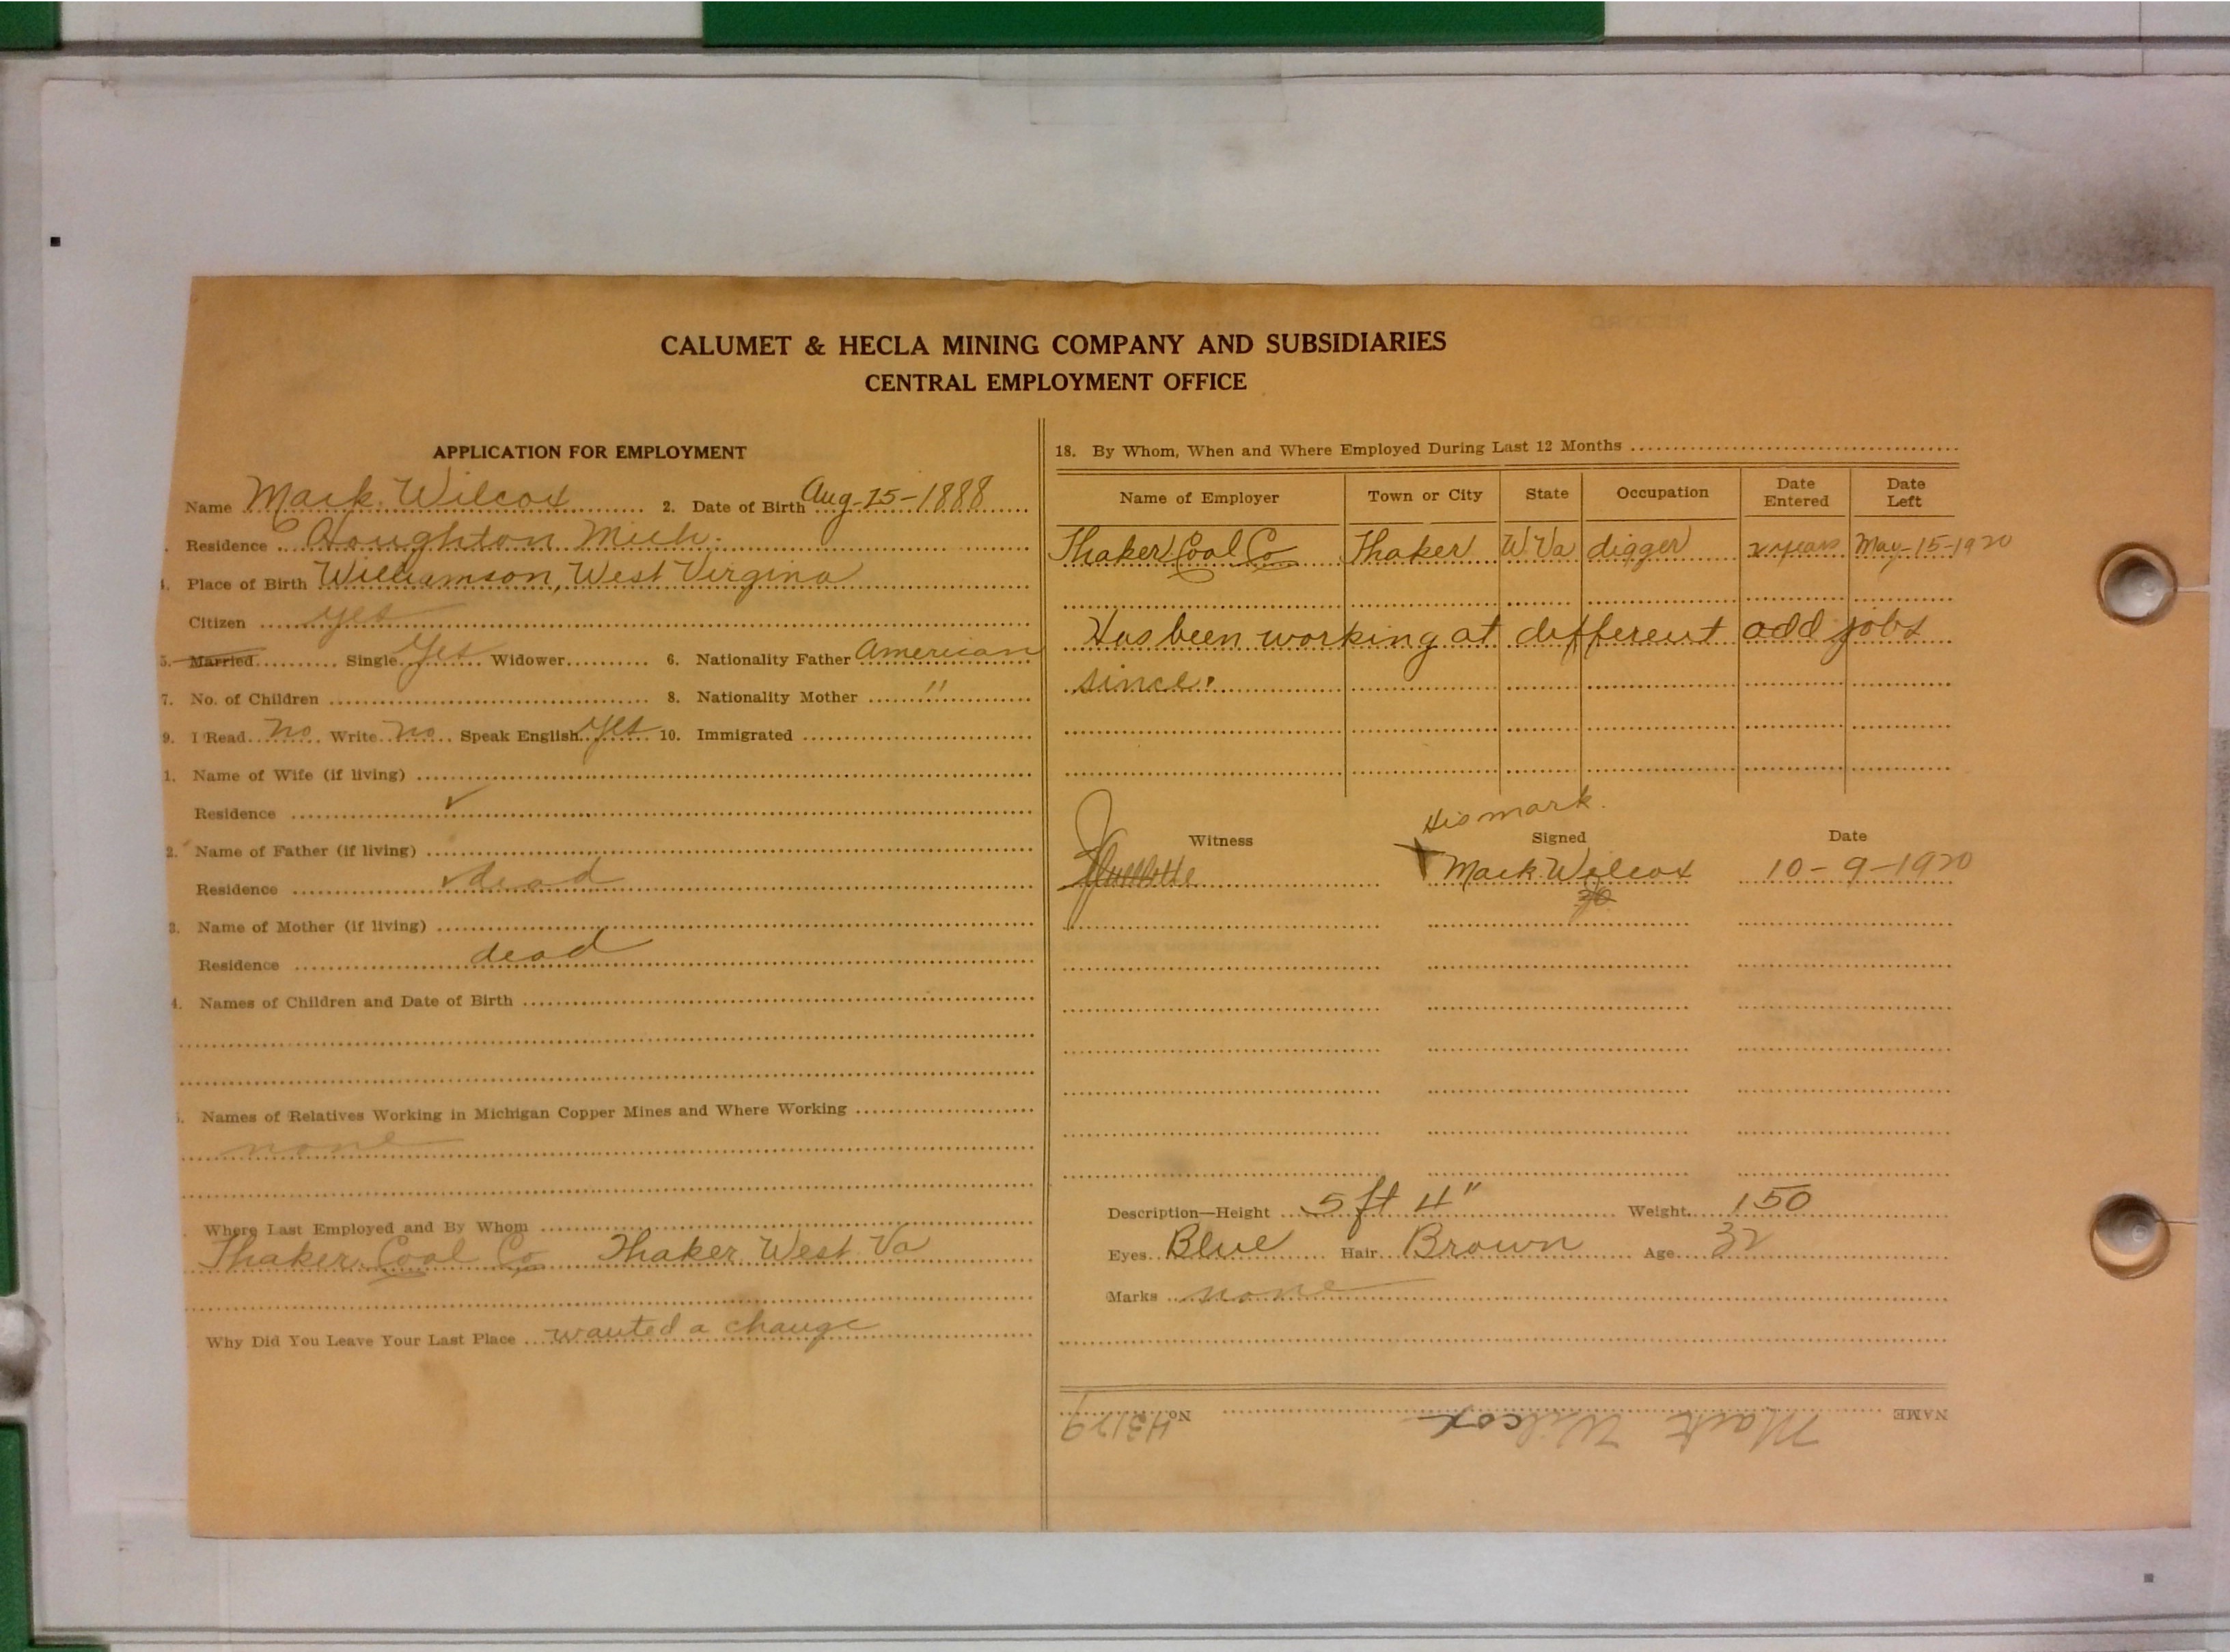 CALUMET & HECLA MINING COMPANY AND SUBSIDIARIES
CENTRAL EMPLOYMENT OFFICE
APPLICATION FOR EMPLOYMENT
Name Mark Wilcox 2. Date of Birth Aug-15-1888
Residence Houghton Mich.
Place of Birth Williamson, West Virgina
Citizen yes
5. Married Single Yes Widower 6. Nationality Father American
7. No. of Children 8. Nationality Mother "
9. I Read no Write no Speak English yes 10. Immigrated
1. Name of Wife (if living)
Residence ✓
2. Name of Father (if living)
Residence ✓ dead
3. Name of Mother (if living)
Residence dead
4. Names of Children and Date of Birth
Names of Relatives Working in Michigan Copper Mines and Where Working
none
Where Last Employed and By Whom
Thaker Coal Co Thaker West Va
Why Did You Leave Your Last Place wanted a change
18. By Whom, When and Where Employed During Last 12 Months
Name of Employer Town or City State Occupation Date Entered Date Left
Thaker Coal Co Thaker W Va digger 2 years May-15-1920
Has been working at different odd jobs
since.
His mark.
Witness Signed Date
X Mark Wilcox 10-9-1920
Description—Height 5 ft 4" Weight 150
Eyes Blue Hair Brown Age 32
Marks none
NAME Mark Wilcox No. 43179